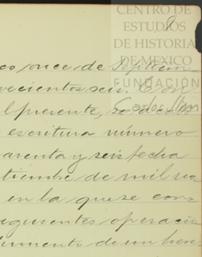 CENTRO DE
ESTUDIOS
DE HISTORIA
DE MEXICO
FUNDACIÓN
Carlos Slim
co, once de Septiem
vecientos seis.
l presente,
escritura número
arenta y seis fecha
tiembre de mil no
en la que se cons
siguientes operacio